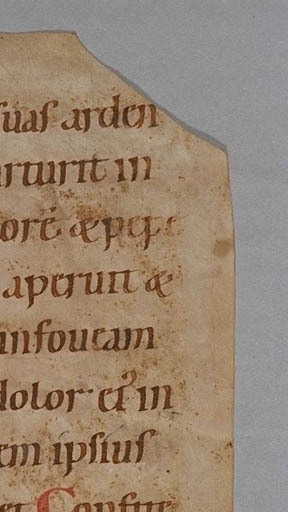 suas arden
rturit in
orē & pep
aperuit &
in foueam
dolor ei in
em ipsius
Confite